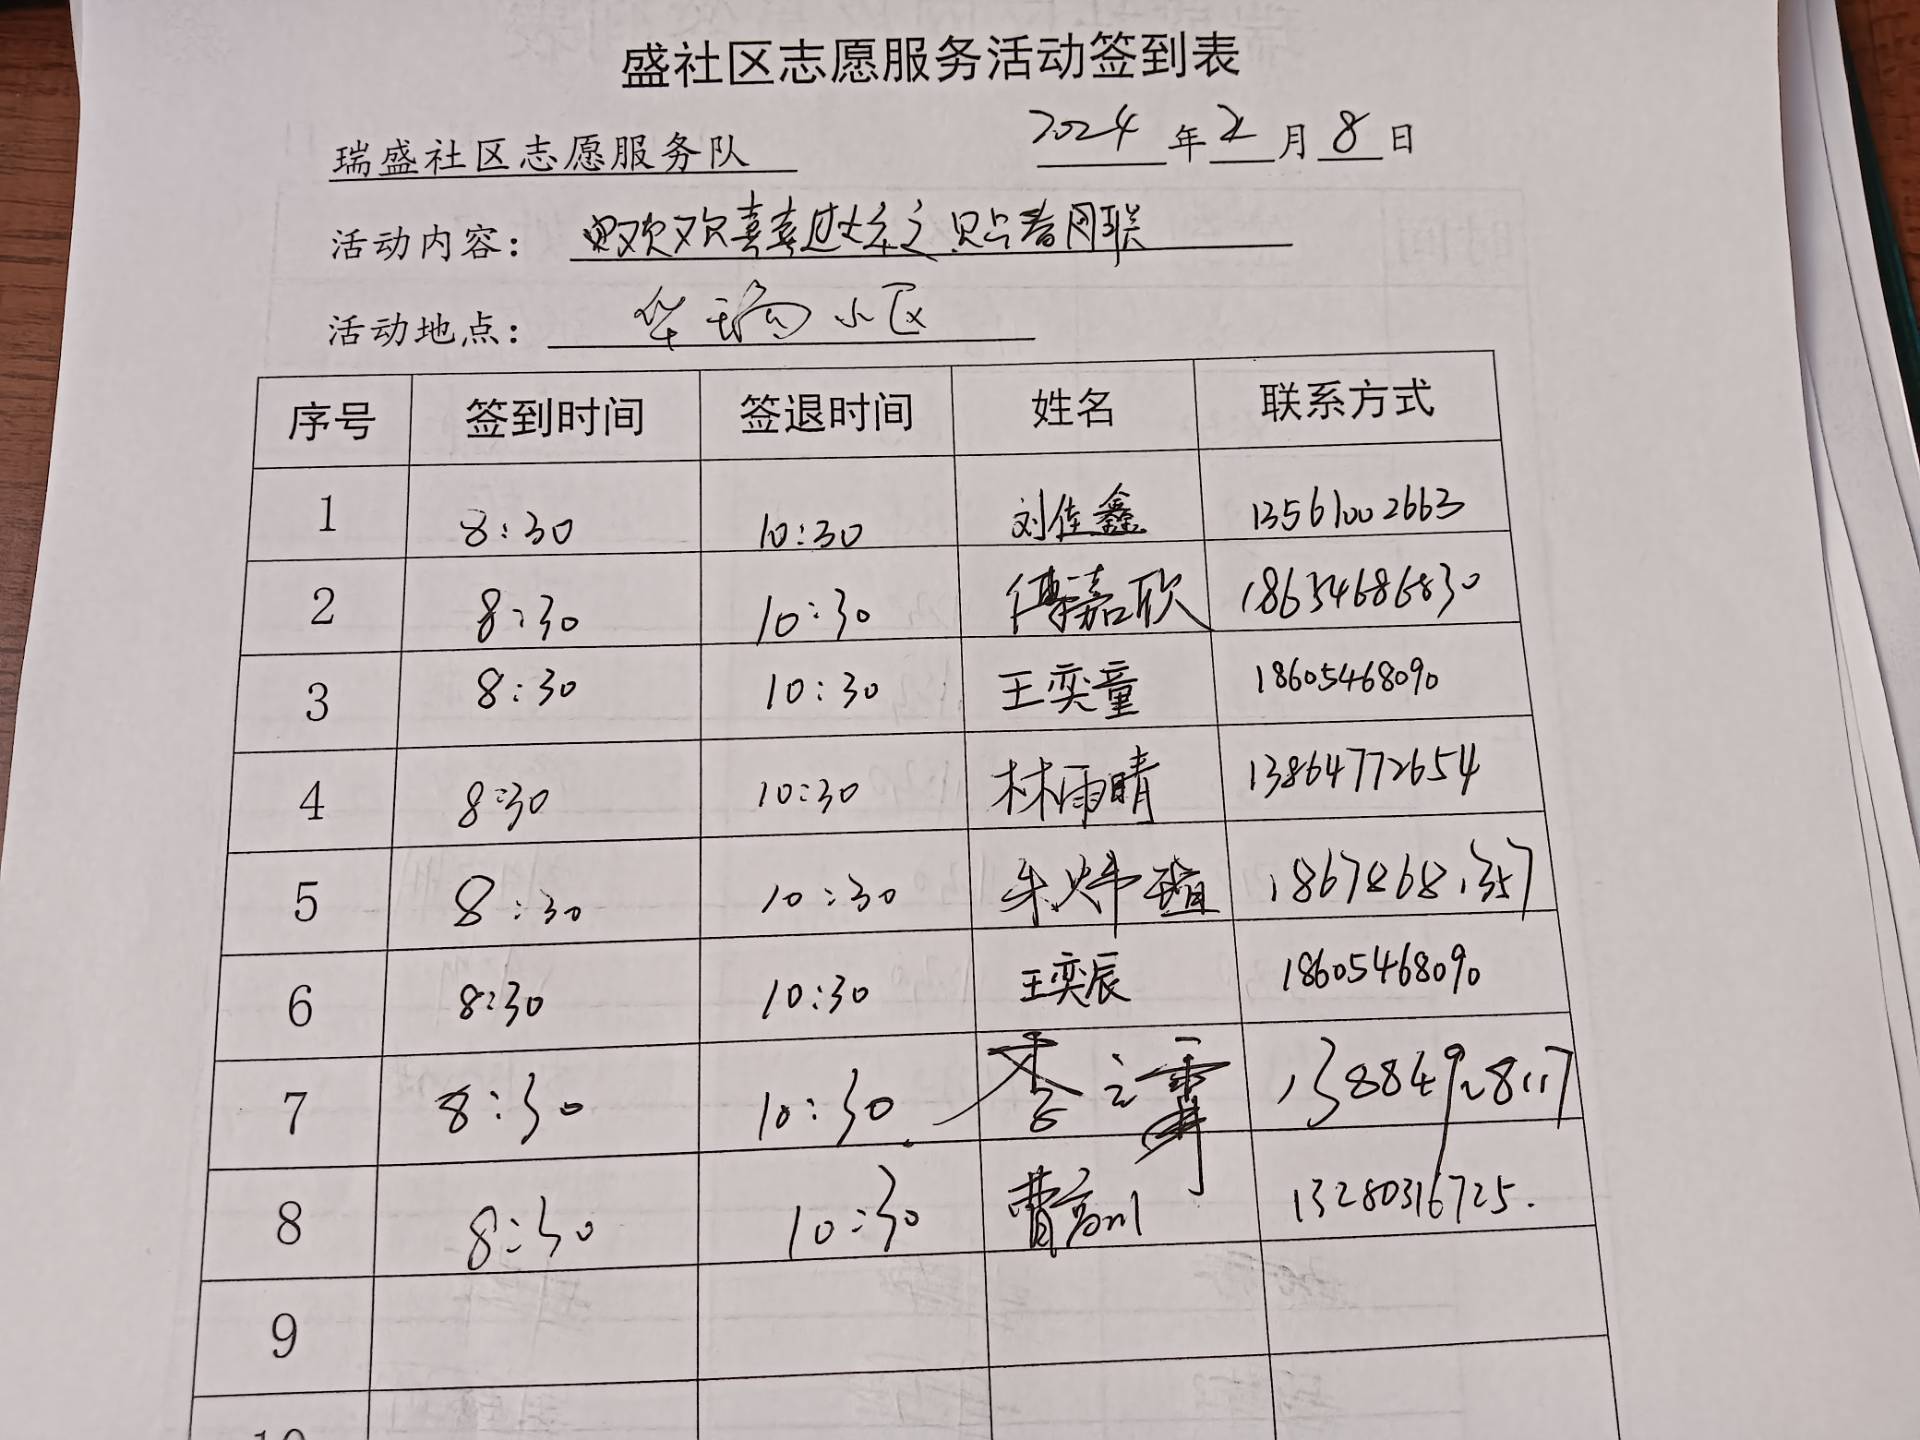 盛社区志愿服务活动签到表
瑞盛社区志愿服务队 2024年2月8日
活动内容: 欢欢喜喜过大年之贴春联
活动地点: 华瑞小区
序号 签到时间 签退时间 姓名 联系方式
1 8:30 10:30 刘佳鑫 13561002663
2 8:30 10:30 傅嘉欣 18654686830
3 8:30 10:30 王奕童 18605468090
4 8:30 10:30 林雨晴 13864772654
5 8:30 10:30 朱炜瑄 18678681357
6 8:30 10:30 王奕辰 18605468090
7 8:30 10:30 李
8 8:30 10:30 曹 13280316725.
9
10